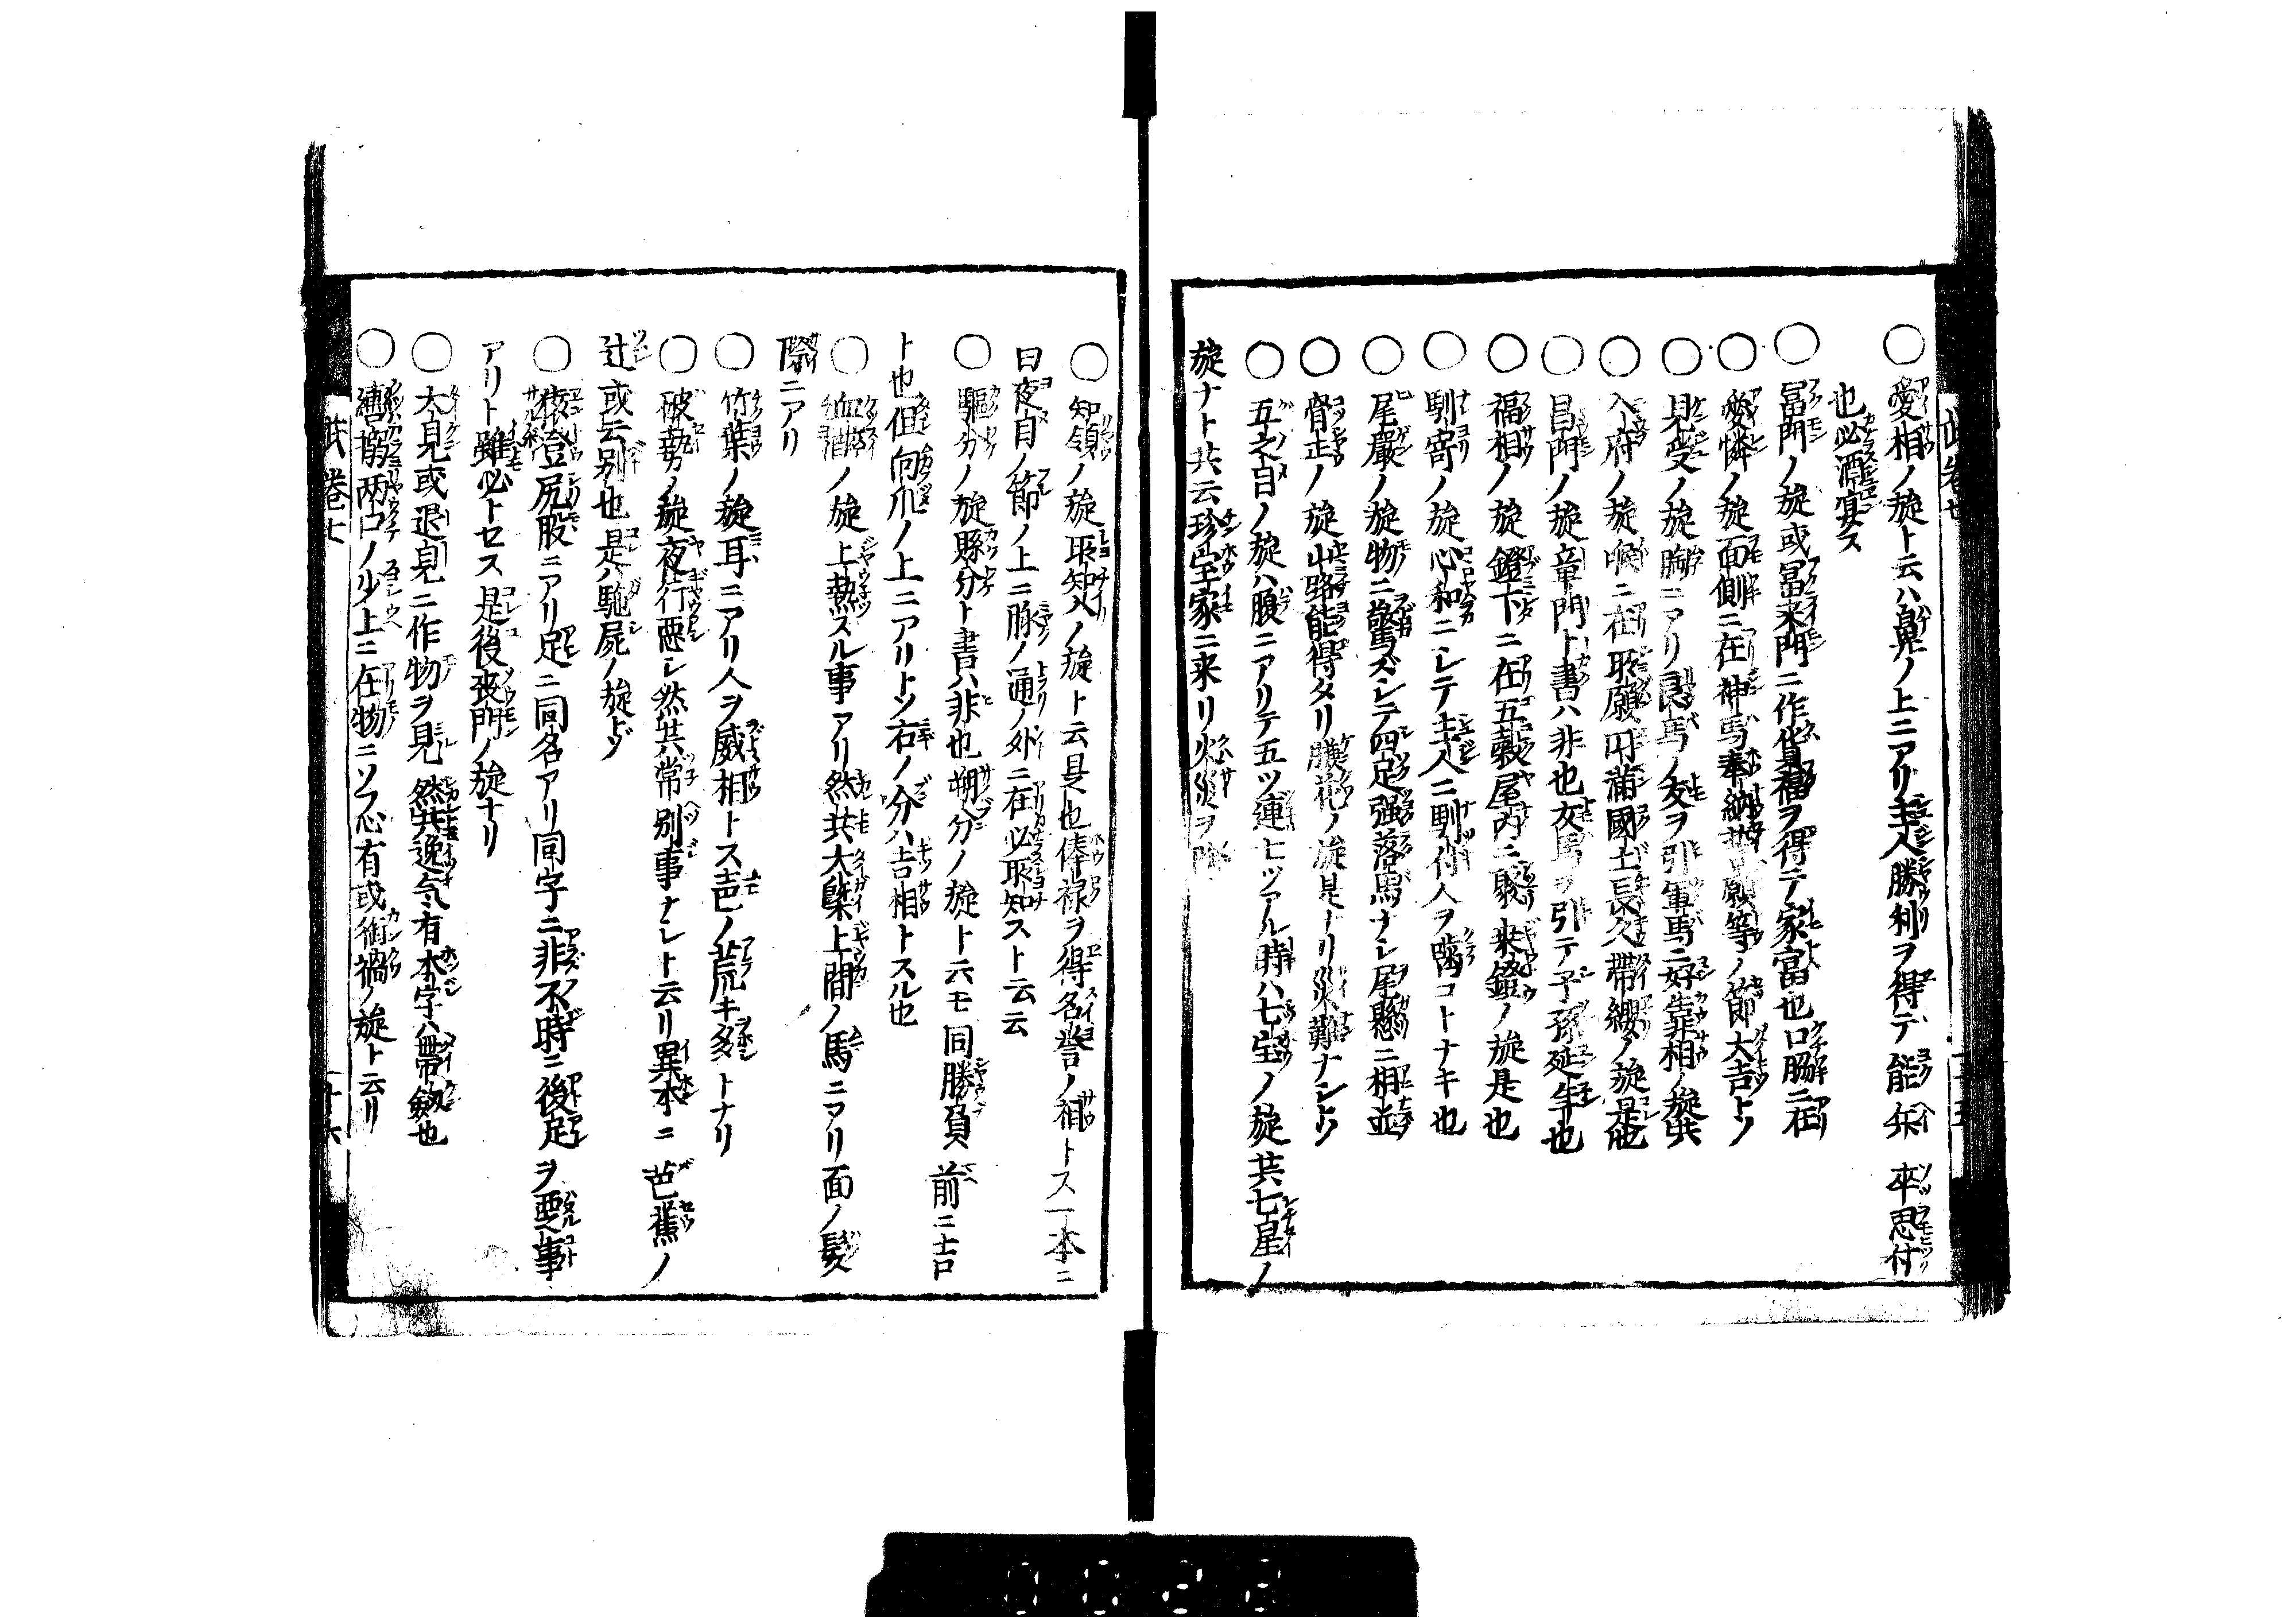 ○愛相ノ旋ト云ハ鼻ノ上ニアリ主人勝利ヲ得テ能兵卒思付
也必酒宴ス
○冨門ノ旋或冨来門ニ作貨福ヲ得テ家富也口脇ニ在
○愛憐ノ旋面側ニ在神馬奉納願等ノ節大吉トソ
○見受ノ旋胸ニアリ良馬ノ友ヲ引軍馬ニ好靠相ノ旋共
○入府ノ旋喉ニ在所願円滿國土長久帶纓ノ旋是也
○昌門ノ旋章門ト書ハ非也友馬ヲ引テ子孫延年也
○福相ノ旋鐙下ニ在五穀屋内ニ聚来鐙ノ旋是也
○馴寄ノ旋心和ニシテ主人ニ馴他人ヲ噛コトナキ也
○尾嚴ノ旋物ニ驚ズシテ四足强落馬ナシ尾懸ニ相並
○脅走ノ旋山路能得タリ膁祀ノ旋是ナリ災難ナシトソ
○五之目ノ旋ハ腹ニアリテ五ツ連七ツアル時ハ七宝ノ旋共七星ノ
旋ナト共云珍宝家ニ来リ火災ヲ除
○知領ノ旋所知入ノ旋ト云是也俸禄ヲ得名誉ノ相トス一本ニ
曰夜目ノ節ノ上ニ脉ノ通ノ外ニ在必所知スト云云
○驅分ノ旋縣分ト書ハ非也朔分ノ旋ト云モ同勝負前ニ吉凶
ト也但向爪ノ上ニアリトソ右ノ分ハ吉相トスル也
○血醉ノ旋上熱スル事アリ然共大槩上間ノ馬ニアリ面ノ髪
際ニアリ
○竹葉ノ旋耳ニアリ人ヲ威相トス芭ノ荒キ多トナリ
○破勢ノ旋夜行悪シ然共常別事ナシト云リ異本ニ芭蕉ノ
辻或云别也是ハ馳屍ノ旋トゾ
○猿登尻股ニアリ足ニ同名アリ同字ニ非不時ニ後足ヲ悪事
アリト雖必トセス是後喪門ノ旋ナリ
○大見或退見ニ作物ヲ見然共逸気有本字ハ帶劔也
○轡搦两口ノ少上ニ在物ニソフ心有或銜禍ノ旋ト云リ
武卷七　十六